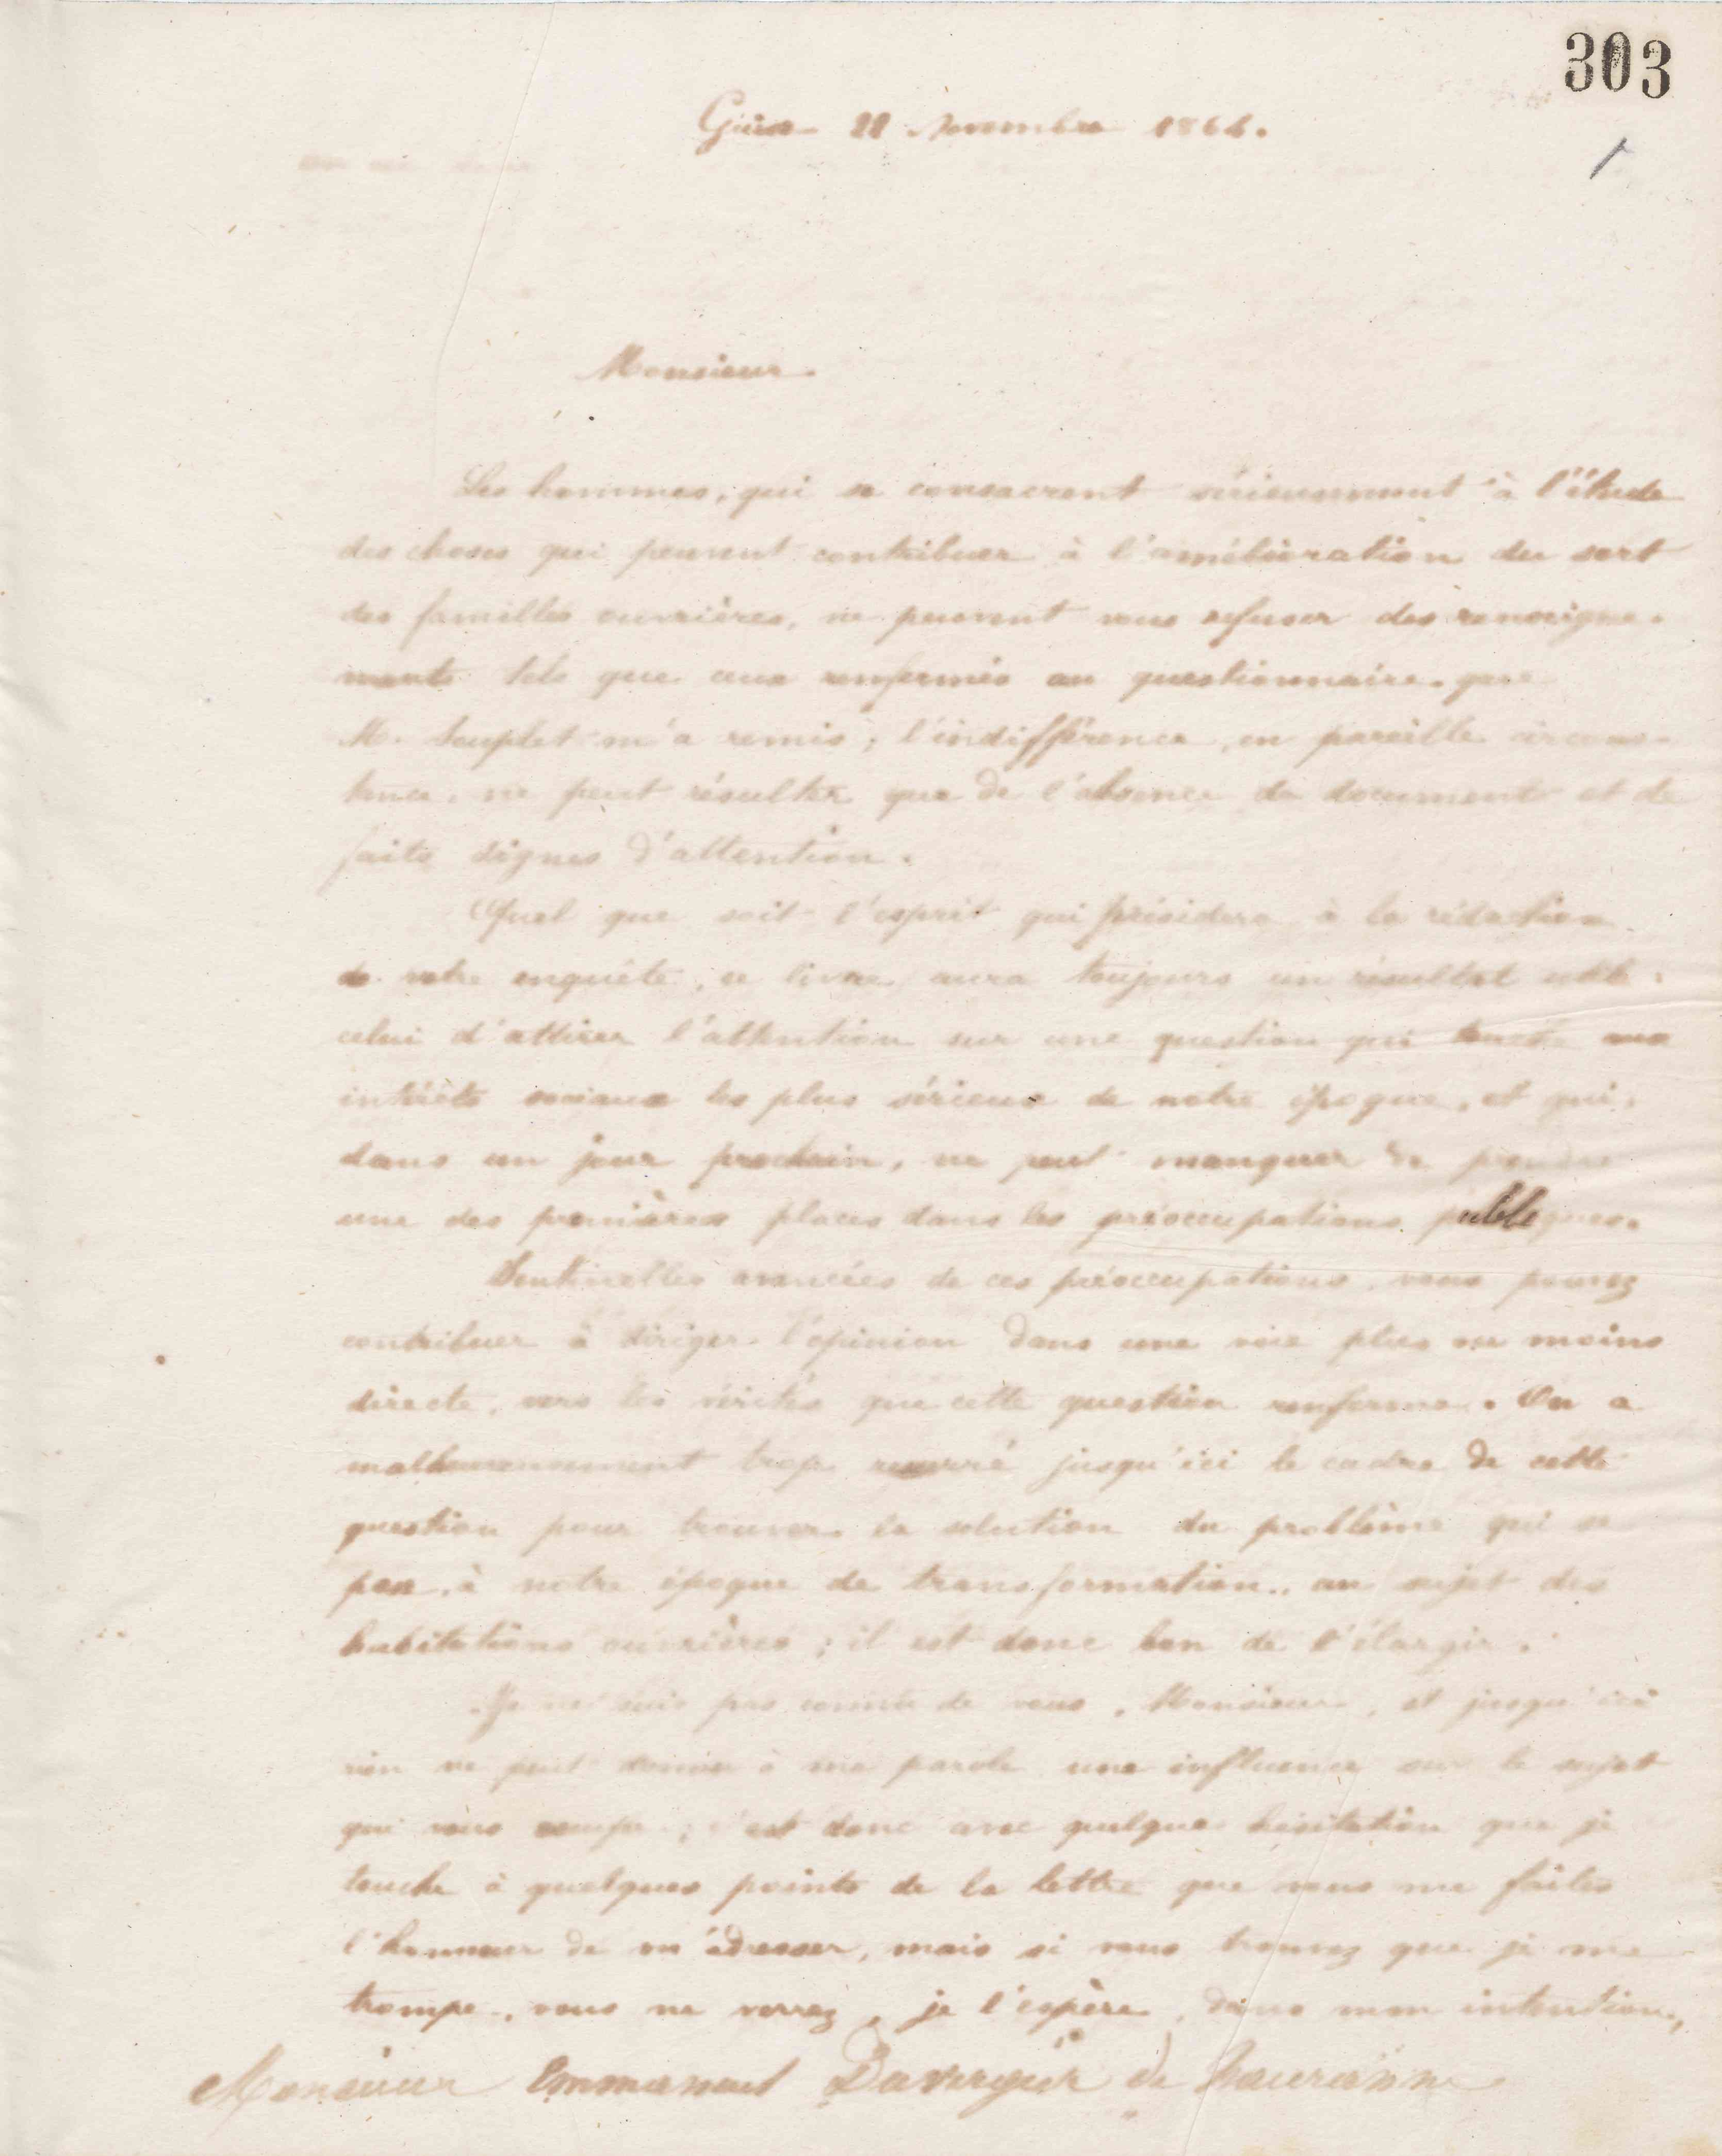 303
Guise 22 Novembre 1866.
Monsieur.
Les hommes, qui se consacrent sérieusement à l'étude
des choses qui peuvent contribuer à l'amélioration du sort
des familles ouvrières, ne peuvent vous refuser des renseigne-
ments tels que ceux renfermés au questionnaire que
M. Souplet m'a remis ; l'indifférence, en pareille circons-
tance, ne peut résulter que de l'absence de documents et de
faits dignes d'attention.
Quel que soit l'esprit qui présidera à la rédaction
de votre enquête, ce livre aura toujours un résultat utile :
celui d'attirer l'attention sur une question qui touche aux
intérêts sociaux les plus sérieux de notre époque, et qui,
dans un jour prochain, ne peut manquer de prendre
une des premières places dans les préoccupations publiques.
Sentinelles avancées de ces préoccupations, vous pouvez
contribuer à diriger l'opinion dans une voie plus ou moins
directe, vers les vérités que cette question renferme. On a
malheureusement trop resserré jusqu'ici le cadre de cette
question pour trouver la solution du problème qui se
pose, à notre époque de transformation, au sujet des
habitations ouvrières ; il est donc bon de l'élargir.
Je ne suis pas connu de vous, Monsieur, et jusqu'ici
rien ne peut donner à ma parole une influence sur le sujet
qui vous occupe ; c'est donc avec quelque hésitation que je
touche à quelques points de la lettre que vous me faites
l'honneur de m'adresser, mais si vous trouvez que je me
trompe, vous ne verrez, je l'espère, dans mon intention,
Monsieur Emmanuel Duvergier de Hauranne